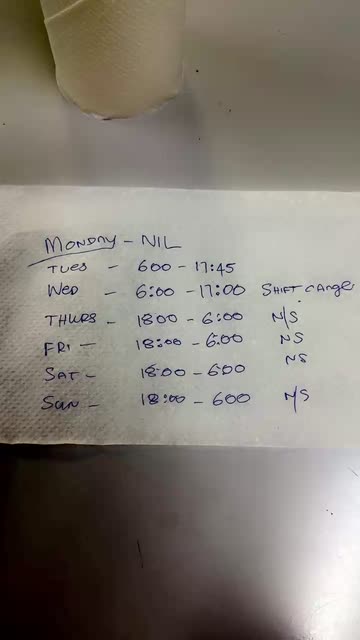 MONDAY - NIL
TUES - 600 - 17:45
WED - 6:00 - 17:00 SHIFT CANGE
THURS - 1800 - 6:00 N/S
FRI - 18:00 - 6:00 NS
SAT - 18:00 - 600 NS
SUN - 18:00 - 600 N/S